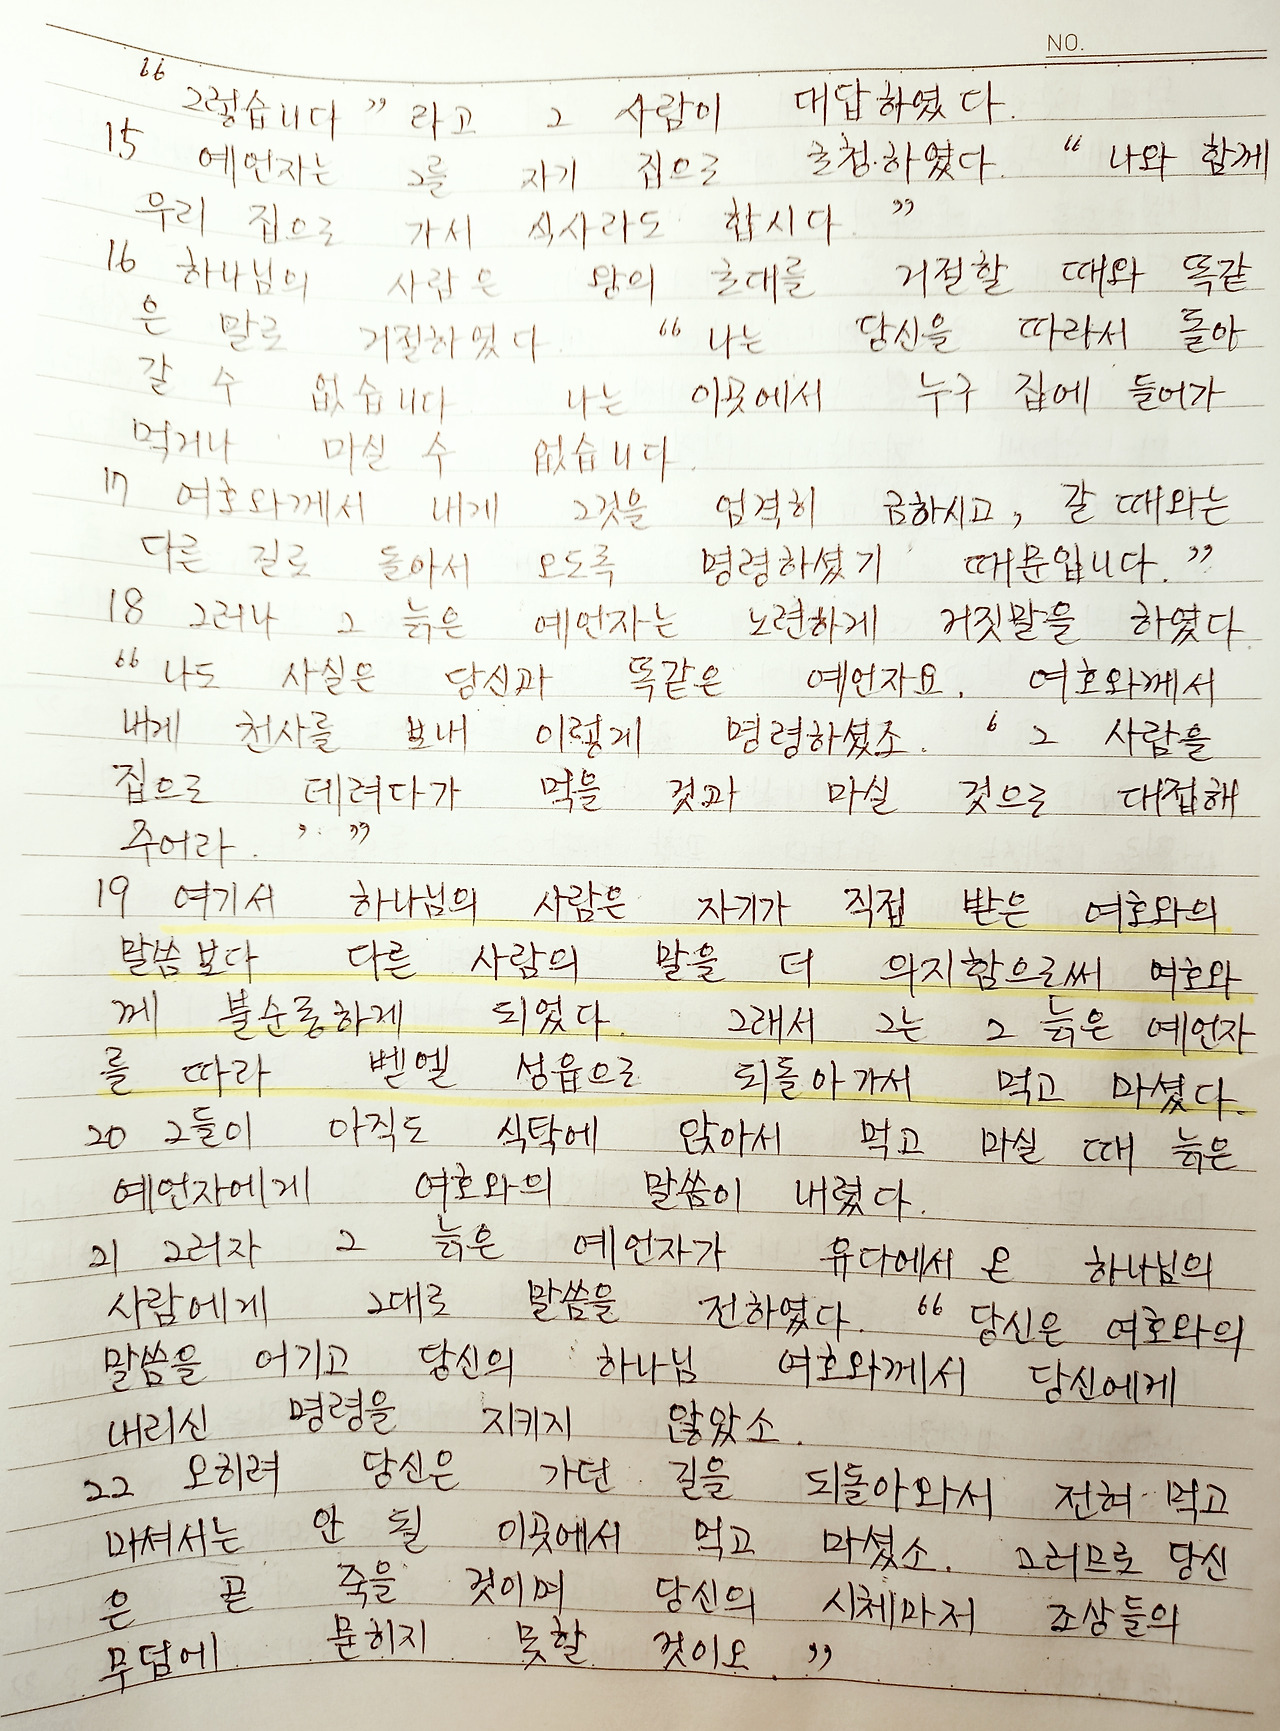 NO.
“ 그렇습니다 ” 라고 그 사람이 대답하였다.
15 예언자는 그를 자기 집으로 초청하였다. “ 나와 함께
우리 집으로 가서 식사라도 합시다. ”
16 하나님의 사람은 왕의 초대를 거절할 때와 똑같
은 말로 거절하였다. “ 나는 당신을 따라서 돌아
갈 수 없습니다 나는 이곳에서 누구 집에 들어가
먹거나 마실 수 없습니다.
17 여호와께서 내게 그것을 엄격히 금하시고, 갈 때와는
다른 길로 돌아서 오도록 명령하셨기 때문입니다. ”
18 그러나 그 늙은 예언자는 노련하게 거짓말을 하였다.
“ 나도 사실은 당신과 똑같은 예언자요. 여호와께서
내게 천사를 보내 이렇게 명령하셨소. ‘ 그 사람을
집으로 데려다가 먹을 것과 마실 것으로 대접해
주어라. ’ ”
19 여기서 하나님의 사람은 자기가 직접 받은 여호와의
말씀보다 다른 사람의 말을 더 의지함으로써 여호와
께 불순종하게 되었다. 그래서 그는 그 늙은 예언자
를 따라 벧엘 성읍으로 되돌아가서 먹고 마셨다.
20 그들이 아직도 식탁에 앉아서 먹고 마실 때 늙은
예언자에게 여호와의 말씀이 내렸다.
21 그러자 그 늙은 예언자가 유다에서 온 하나님의
사람에게 그대로 말씀을 전하였다. “ 당신은 여호와의
말씀을 어기고 당신의 하나님 여호와께서 당신에게
내리신 명령을 지키지 않았소.
22 오히려 당신은 가던 길을 되돌아와서 전혀 먹고
마셔서는 안 될 이곳에서 먹고 마셨소. 그러므로 당신
은 곧 죽을 것이며 당신의 시체마저 조상들의
무덤에 묻히지 못할 것이오. ”